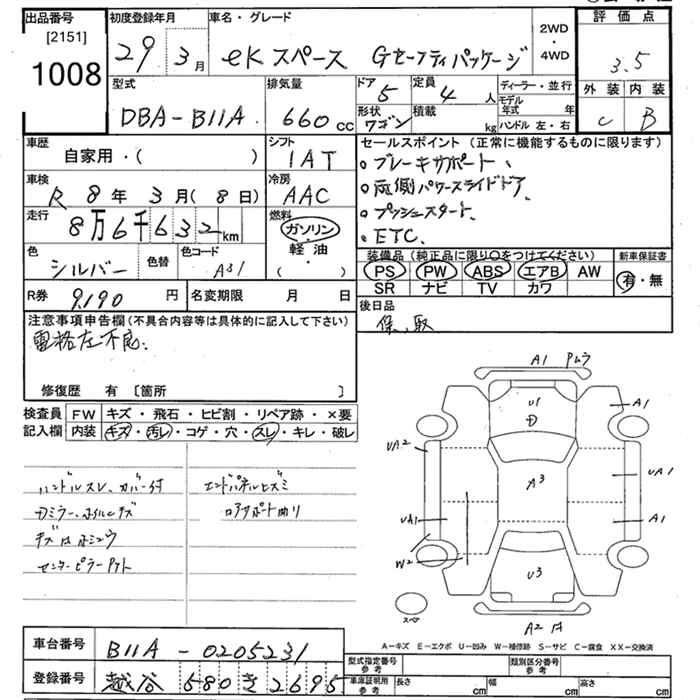 出品番号 初度登録年月 車名・グレード 評価点
[2151]
1008
29年 3月 eKスペース Gセーフティパッケージ 2WD・4WD 3.5
外装 内装
C B
型式 排気量 ドア 定員 ディーラー・並行
DBA-B11A 660cc 5 4人
形状 積載 モデル年式 年
ワゴン kg ハンドル 左・右
車歴 シフト セールスポイント (正常に機能するものに限ります)
自家用・( ) IAT
・ブレーキサポート、
車検 冷房
R 8年 3月 (8日) AAC
・両側パワースライドドア
走行 燃料
8万6千632km ガソリン・軽油 ( )
・プッシュスタート、
・ETC、
色 色替 色コード
シルバー A31
装備品 (純正品に限り○をつけてください) 新車保証書
PS PW ABS エアB AW 有・無
SR ナビ TV カワ
R券 9,190円 名変期限 月 日
後日品
保、取
注意事項申告欄 (不具合内容等は具体的に記入して下さい)
電格左不良.
修復歴 有 [箇所 ]
検査員記入欄 FW キズ・飛石・ヒビ割・リペア跡・×要
内装 キズ・汚レ・コゲ・穴・スレ・キレ・破レ
ハンドルスレ、カバー付
Dミラー、ホイルキズ
センターピラーアト
エンドパネルヒズミ
コアサポート曲り
A1
U1
D
A1
UA2
A3
UA1
UA1
A1
W2
U3
スペア
A2
A-キズ E-エクボ U-凹み W-補修跡 S-サビ C-腐食 XX-交換済
車台番号 B11A-0205231
登録番号 越谷 580 き 2695
型式指定番号 参考 類別区分番号 参考
車庫証明用 参考 長さ cm 幅 cm 高さ cm